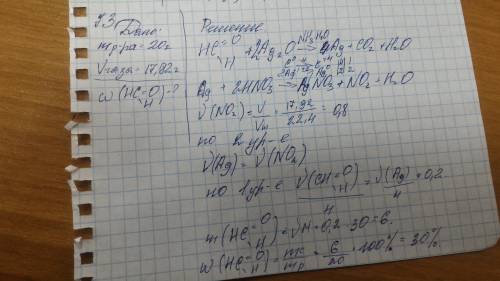 73
Дано:
mр-ра = 20г
Vгаза = 17,92л
W(HC=O H) - ?
Решение
HC=O H + 2Ag2O NH3 H2O → 4Ag + CO2 + H2O
Ag + 2HNO3 → AgNO3 + NO2 - H2O
ν(NO2) = V/Vм = 17,92/22,4 = 0,8
по 2 ур-е
ν(Ag) = ν(NO2)
по 1 ур-е ν(CH=O H) = ν(Ag)/4 = 0,2
m(HC=O H) = νM = 0,2 · 30 = 6.
W(HC=O H) = mв/mр = 6/20 · 100% = 30%.